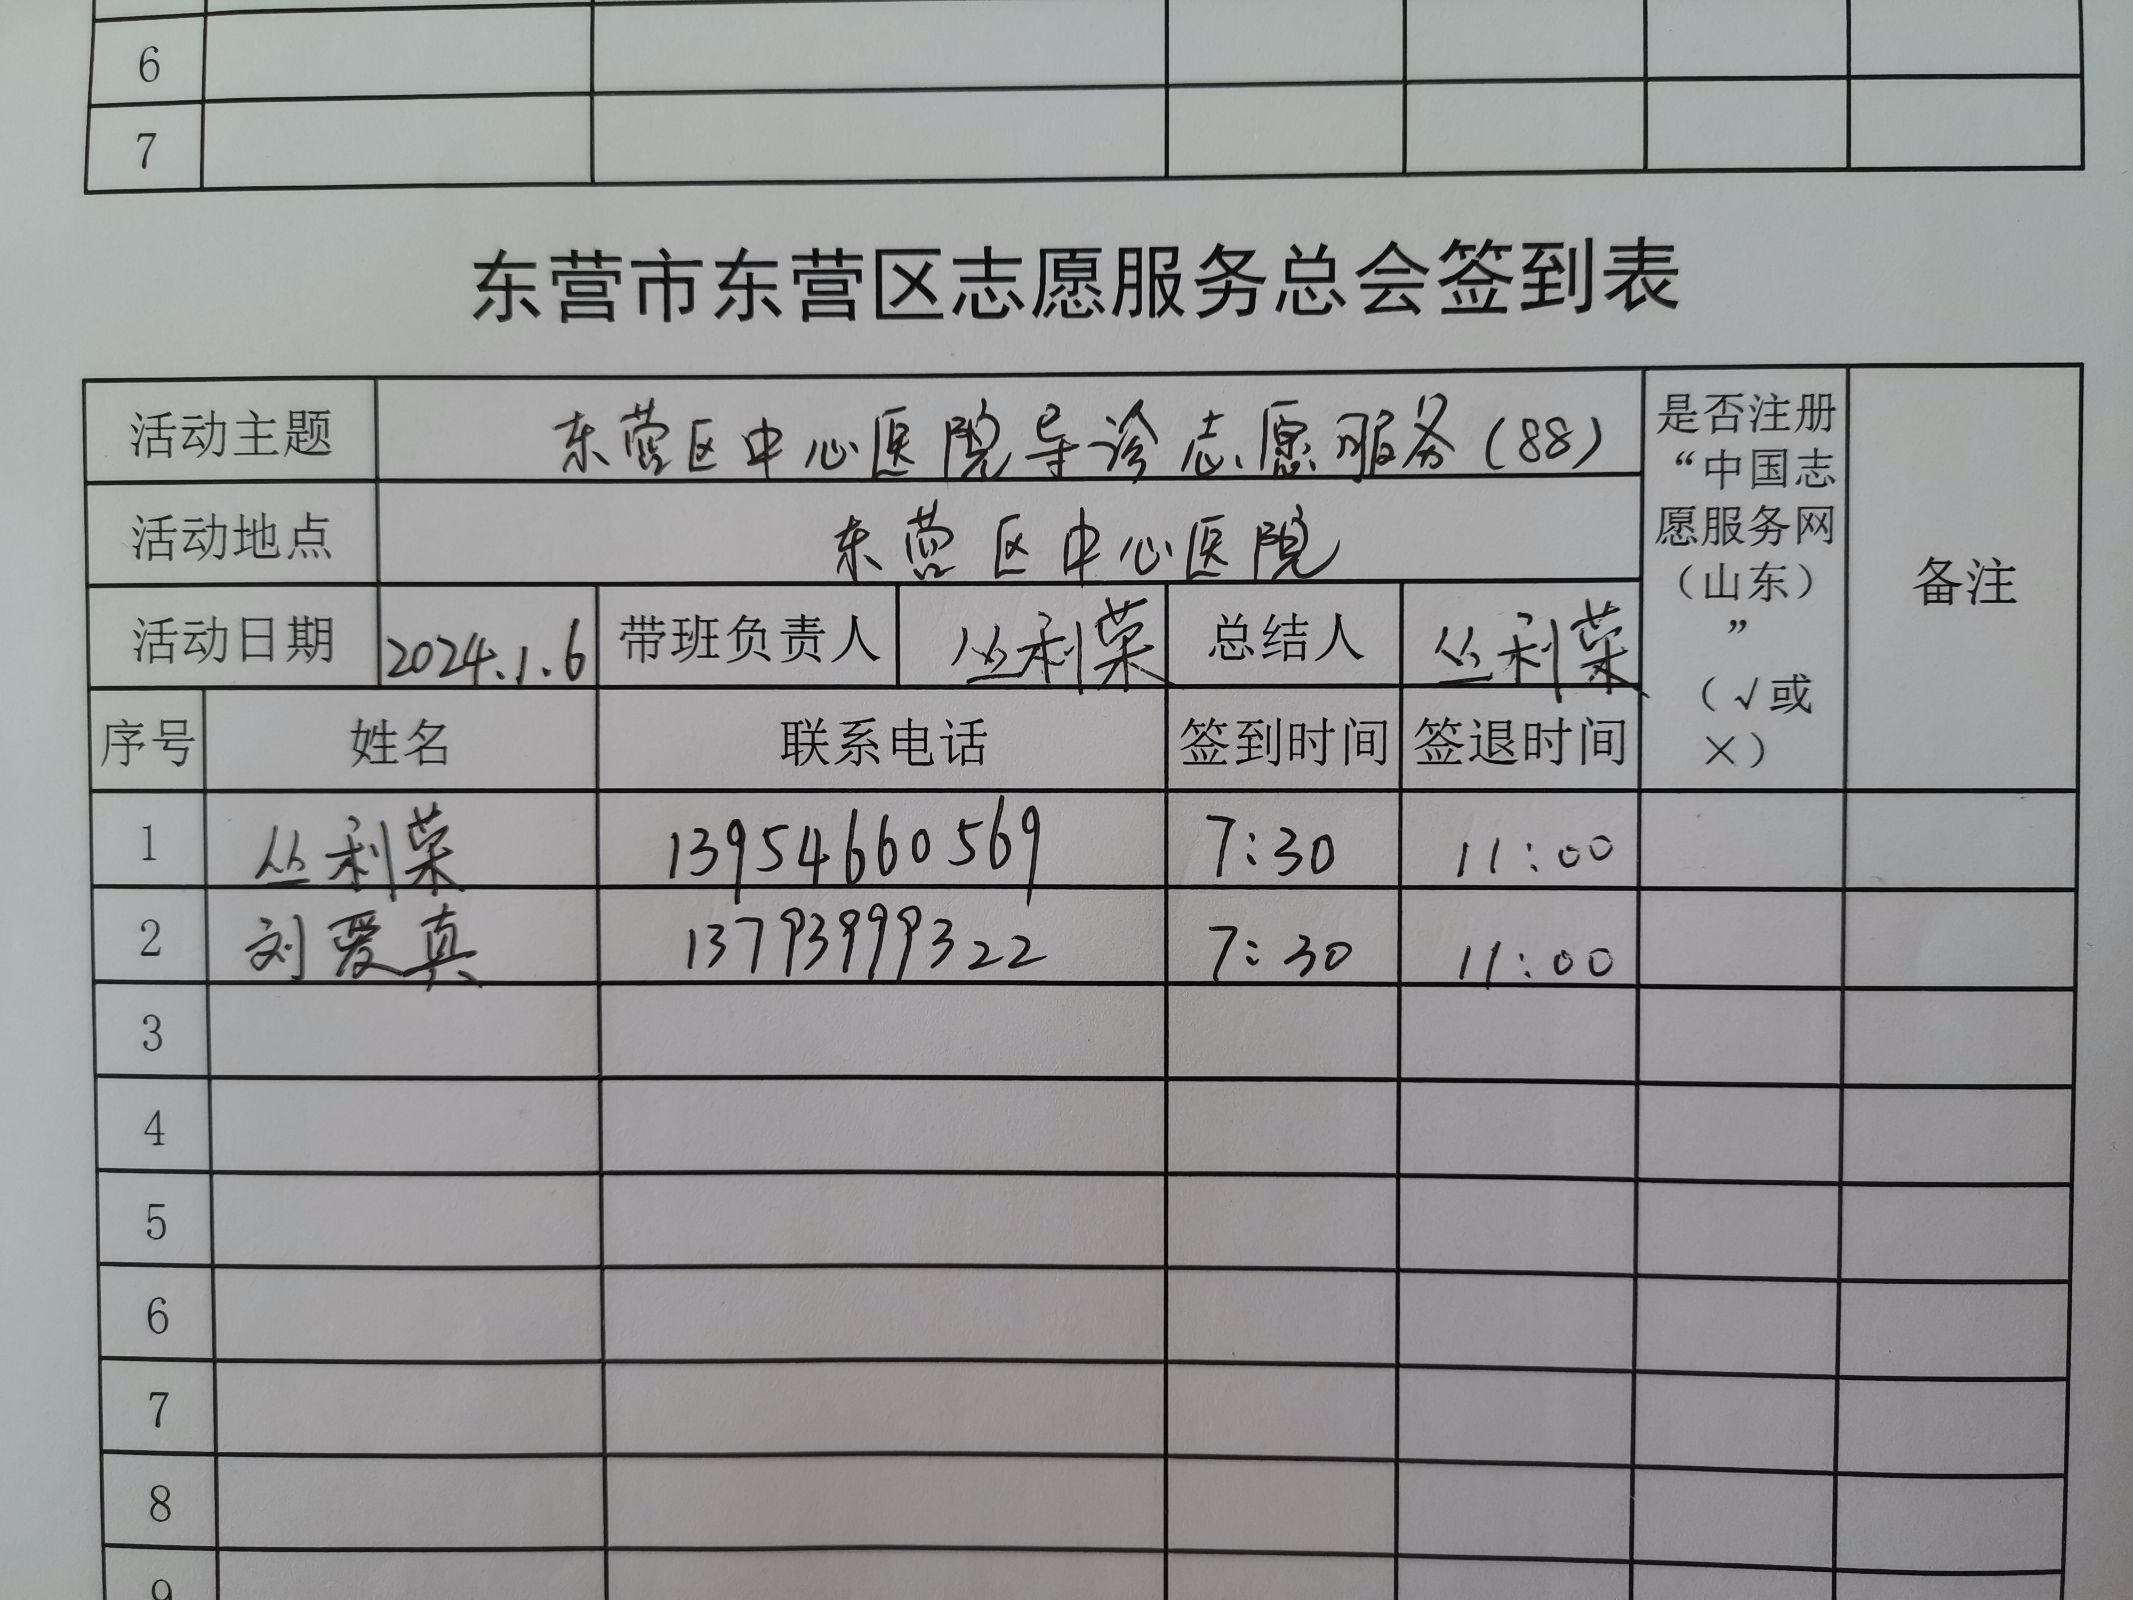 6
7
东营市东营区志愿服务总会签到表
活动主题 东营区中心医院导诊志愿服务(88) 是否注册“中国志愿服务网（山东）”（√或×） 备注
活动地点 东营区中心医院
活动日期 2024.1.6 带班负责人 丛利荣 总结人 丛利荣
序号 姓名 联系电话 签到时间 签退时间
1 丛利荣 13954660569 7:30 11:00
2 刘爱真 13793999322 7:30 11:00
3
4
5
6
7
8
9